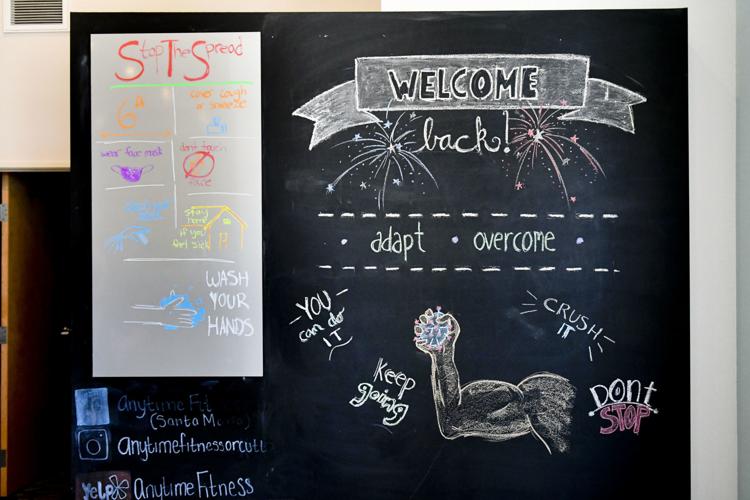 Stop The Spread
6ft
cover cough
or sneeze
wear face mask
dont touch
face
stay
home
if you
feel sick
WASH
YOUR
HANDS
Anytime Fit
(Santa Maria)
anytimefitnessorcutt
yelp Anytime Fitness
WELCOME
back!
adapt • overcome
YOU
can do
IT
CRUSH
IT
Keep
going
DONt
STOP